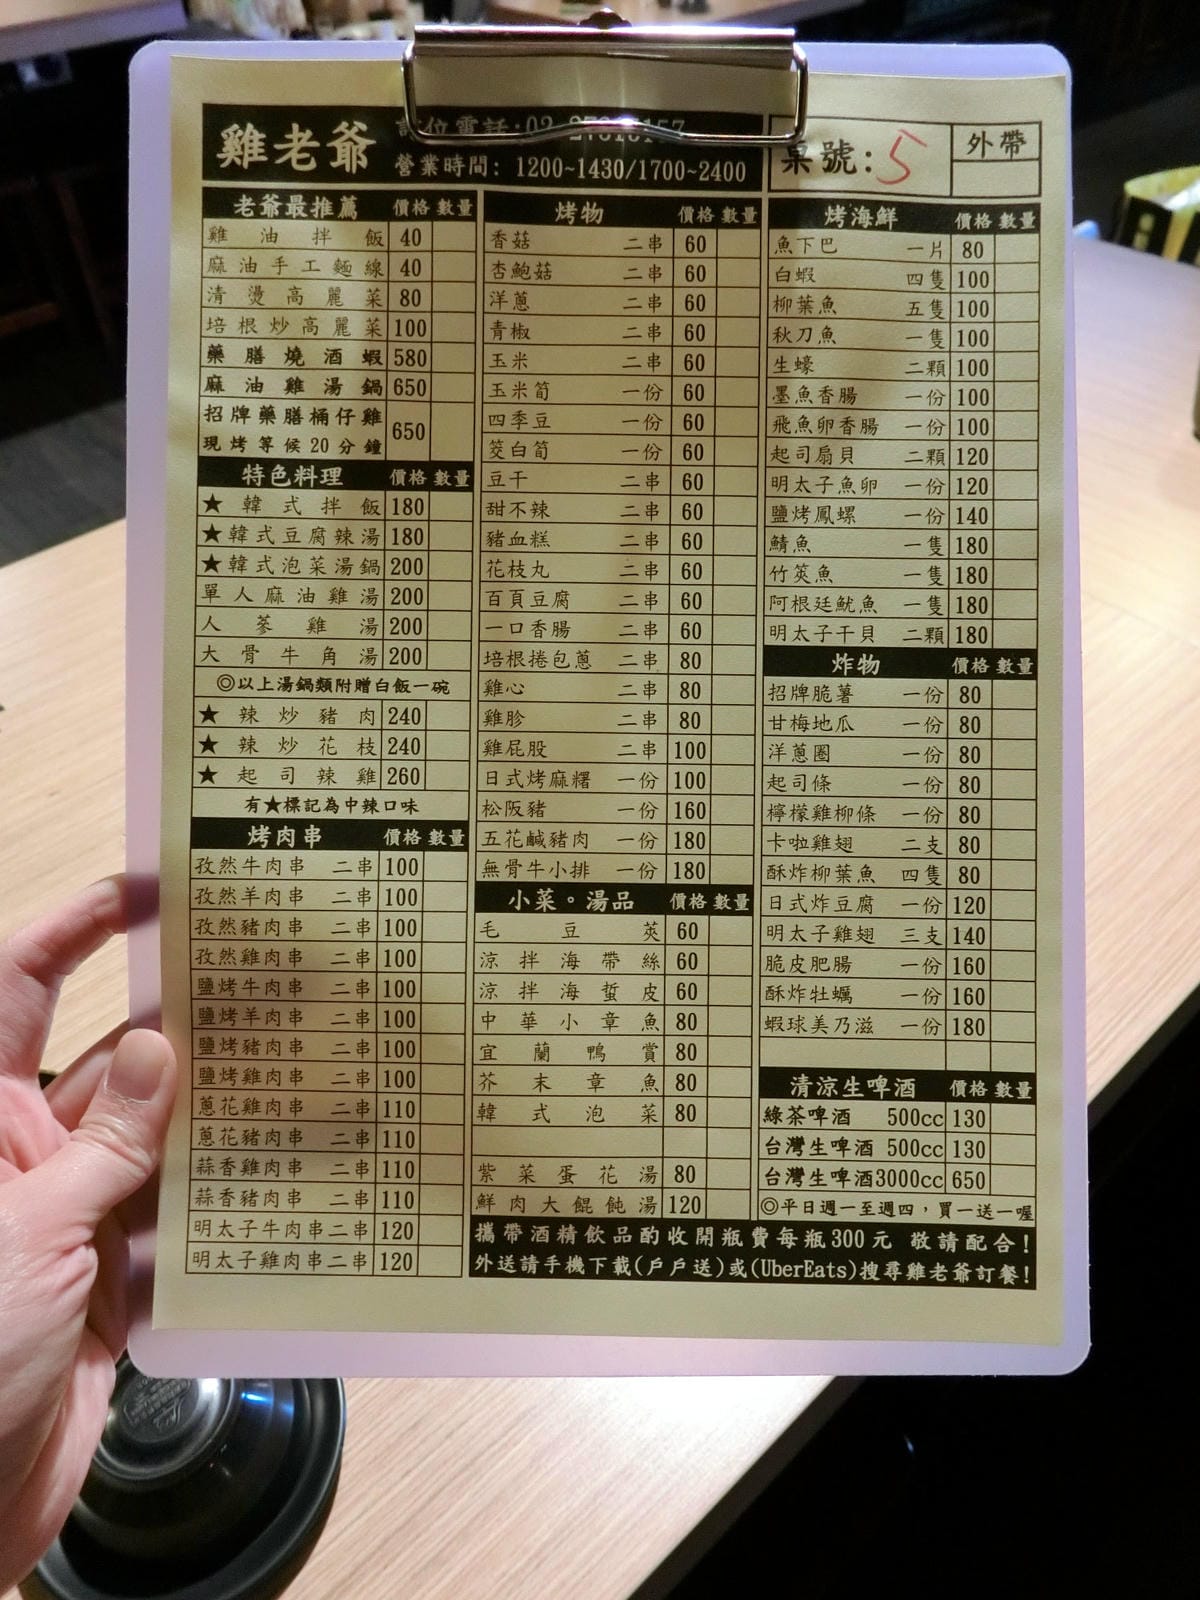 雞老爺
營業時間: 1200~1430/1700~2400
桌號:5
外帶
老爺最推薦 價格 數量
雞油拌飯 40
麻油手工麵線 40
清燙高麗菜 80
培根炒高麗菜 100
藥膳燒酒蝦 580
麻油雞湯鍋 650
招牌藥膳桶仔雞
現烤等候20分鐘 650
特色料理 價格 數量
★韓式拌飯 180
★韓式豆腐辣湯 180
★韓式泡菜湯鍋 200
單人麻油雞湯 200
人蔘雞湯 200
大骨牛角湯 200
◎以上湯鍋類附贈白飯一碗
★辣炒豬肉 240
★辣炒花枝 240
★起司辣雞 260
有★標記為中辣口味
烤肉串 價格 數量
孜然牛肉串 二串 100
孜然羊肉串 二串 100
孜然豬肉串 二串 100
孜然雞肉串 二串 100
鹽烤牛肉串 二串 100
鹽烤羊肉串 二串 100
鹽烤豬肉串 二串 100
鹽烤雞肉串 二串 100
蔥花雞肉串 二串 110
蔥花豬肉串 二串 110
蒜香雞肉串 二串 110
蒜香豬肉串 二串 110
明太子牛肉串二串 120
明太子雞肉串二串 120
烤物 價格 數量
香菇 二串 60
杏鮑菇 二串 60
洋蔥 二串 60
青椒 二串 60
玉米 二串 60
玉米筍 一份 60
四季豆 一份 60
筊白筍 一份 60
豆干 二串 60
甜不辣 二串 60
豬血糕 二串 60
花枝丸 二串 60
百頁豆腐 二串 60
一口香腸 二串 60
培根捲包蔥 二串 80
雞心 二串 80
雞胗 二串 80
雞屁股 二串 100
日式烤麻糬 一份 100
松阪豬 一份 160
五花鹹豬肉 一份 180
無骨牛小排 一份 180
小菜。湯品 價格 數量
毛豆莢 60
涼拌海帶絲 60
涼拌海蜇皮 60
中華小章魚 80
宜蘭鴨賞 80
芥末章魚 80
韓式泡菜 80
紫菜蛋花湯 80
鮮肉大餛飩湯 120
烤海鮮 價格 數量
魚下巴 一片 80
白蝦 四隻 100
柳葉魚 五隻 100
秋刀魚 一隻 100
生蠔 二顆 100
墨魚香腸 一份 100
飛魚卵香腸 一份 100
起司扇貝 二顆 120
明太子魚卵 一份 120
鹽烤鳳螺 一份 140
鯖魚 一隻 180
竹筴魚 一隻 180
阿根廷魷魚 一隻 180
明太子干貝 二顆 180
炸物 價格 數量
招牌脆薯 一份 80
甘梅地瓜 一份 80
洋蔥圈 一份 80
起司條 一份 80
檸檬雞柳條 一份 80
卡啦雞翅 二支 80
酥炸柳葉魚 四隻 80
日式炸豆腐 一份 120
明太子雞翅 三支 140
脆皮肥腸 一份 160
酥炸牡蠣 一份 160
蝦球美乃滋 一份 180
清涼生啤酒 價格 數量
綠茶啤酒 500cc 130
台灣生啤酒 500cc 130
台灣生啤酒3000cc 650
◎平日週一至週四，買一送一喔
攜帶酒精飲品酌收開瓶費每瓶300元 敬請配合!
外送請手機下載(戶戶送)或(UberEats)搜尋雞老爺訂餐!